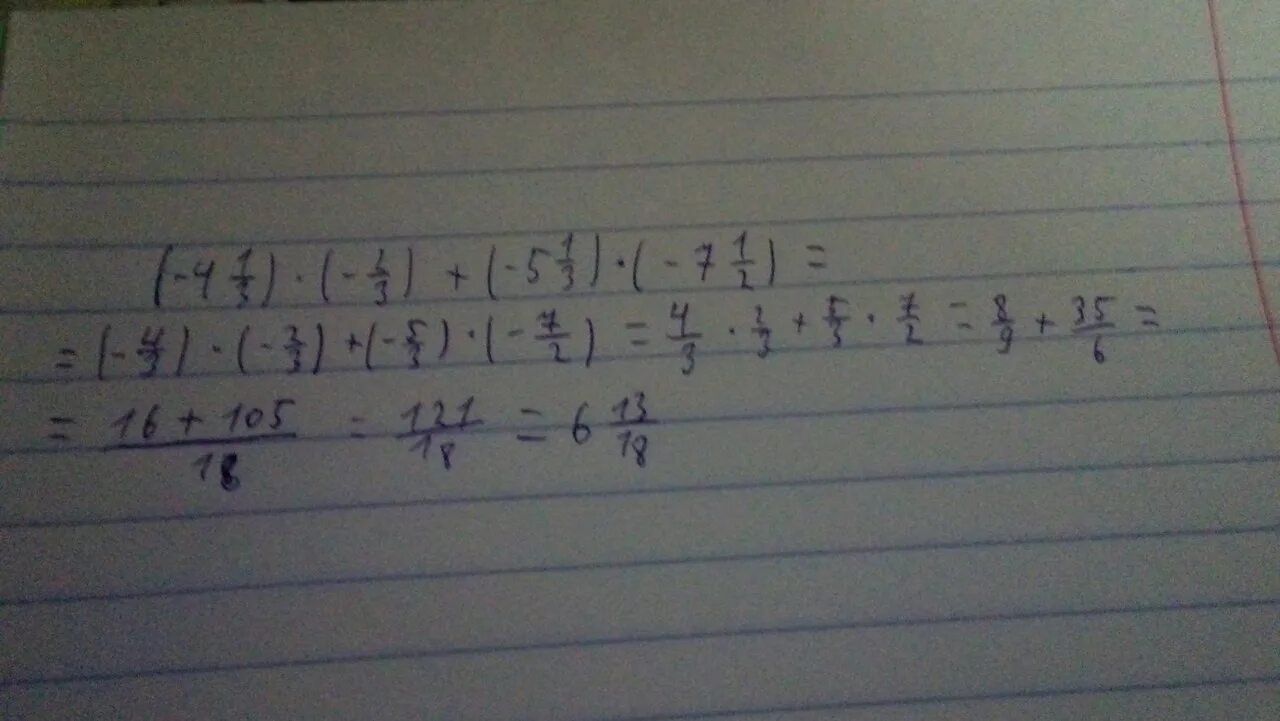 (-4 1/3) · (-2/3) + (-5 1/3) · (-7 1/2) =
= (-4/3) · (-2/3) + (-5/3) · (-7/2) = 4/3 · 2/3 + 5/3 · 7/2 = 8/9 + 35/6 =
= (16 + 105)/18 = 121/18 = 6 13/18